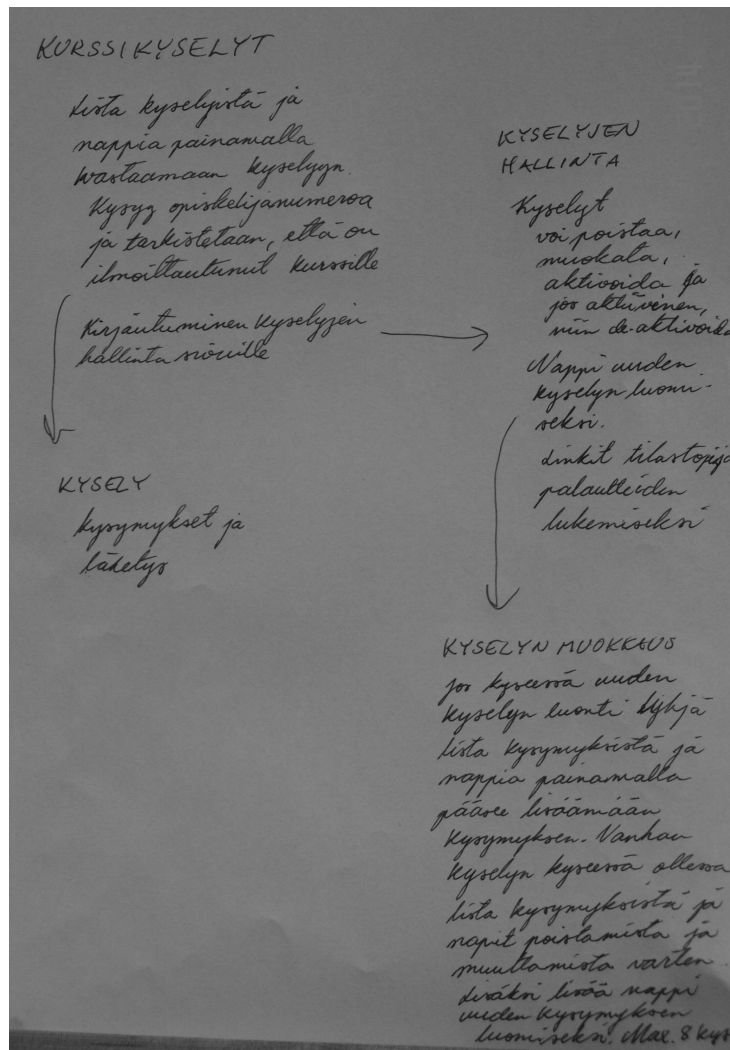 KURSSIKYSELYT
Lista kyselyistä ja
nappia painamalla
vastaamaan kyselyyn.
Kysyy opiskelijanumeroa
ja tarkistetaan, että on
ilmoittautunut kurssille
Kirjautuminen kyselyjen
hallinta sivuille
KYSELY
kysymykset ja
lähetys
KYSELYJEN
HALLINTA
Kyselyt
voi poistaa,
muokata,
aktivoida ja
jos aktiivinen,
niin de-aktivoida
Nappi uuden
kyselyn luomi-
seksi.
Linkit tilastoja
palautteiden
lukemiseksi
KYSELYN MUOKKAUS
jos kyseessä uuden
kyselyn luonti tyhjä
lista kysymyksistä ja
nappia painamalla
pääsee lisäämään
kysymyksen. Vanhan
kyselyn kyseessä ollessa
lista kysymyksistä ja
napit poistamista ja
muuttamista varten.
Lisäksi lisää nappi
uuden kysymyksen
luomiseksi. Max. 8 kys